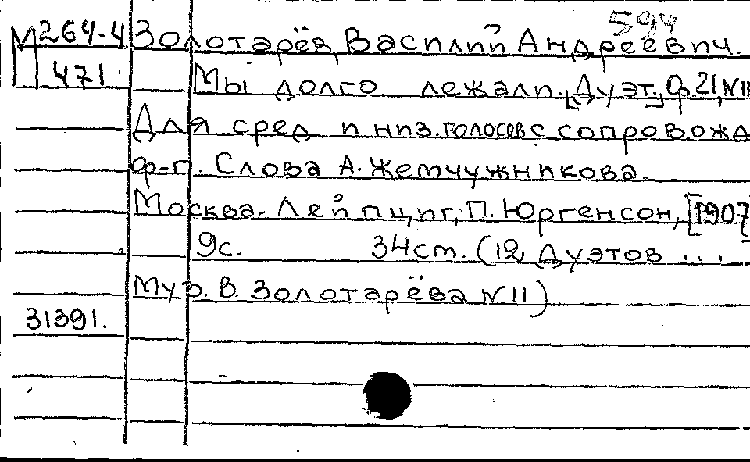 594
М 264-4 Золотарёв, Василий Андреевич.
471 Мы долго лежали. [Дуэт.] Ор. 21, №11
Для сред и низ. голосов с сопровожд
ф-п. Слова А. Жемчужникова.
Москва-Лейпциг, П. Юргенсон, [1907]
9с. 34см. (12 Дуэтов ...
Муз. В. Золотарёва №11)
31391.